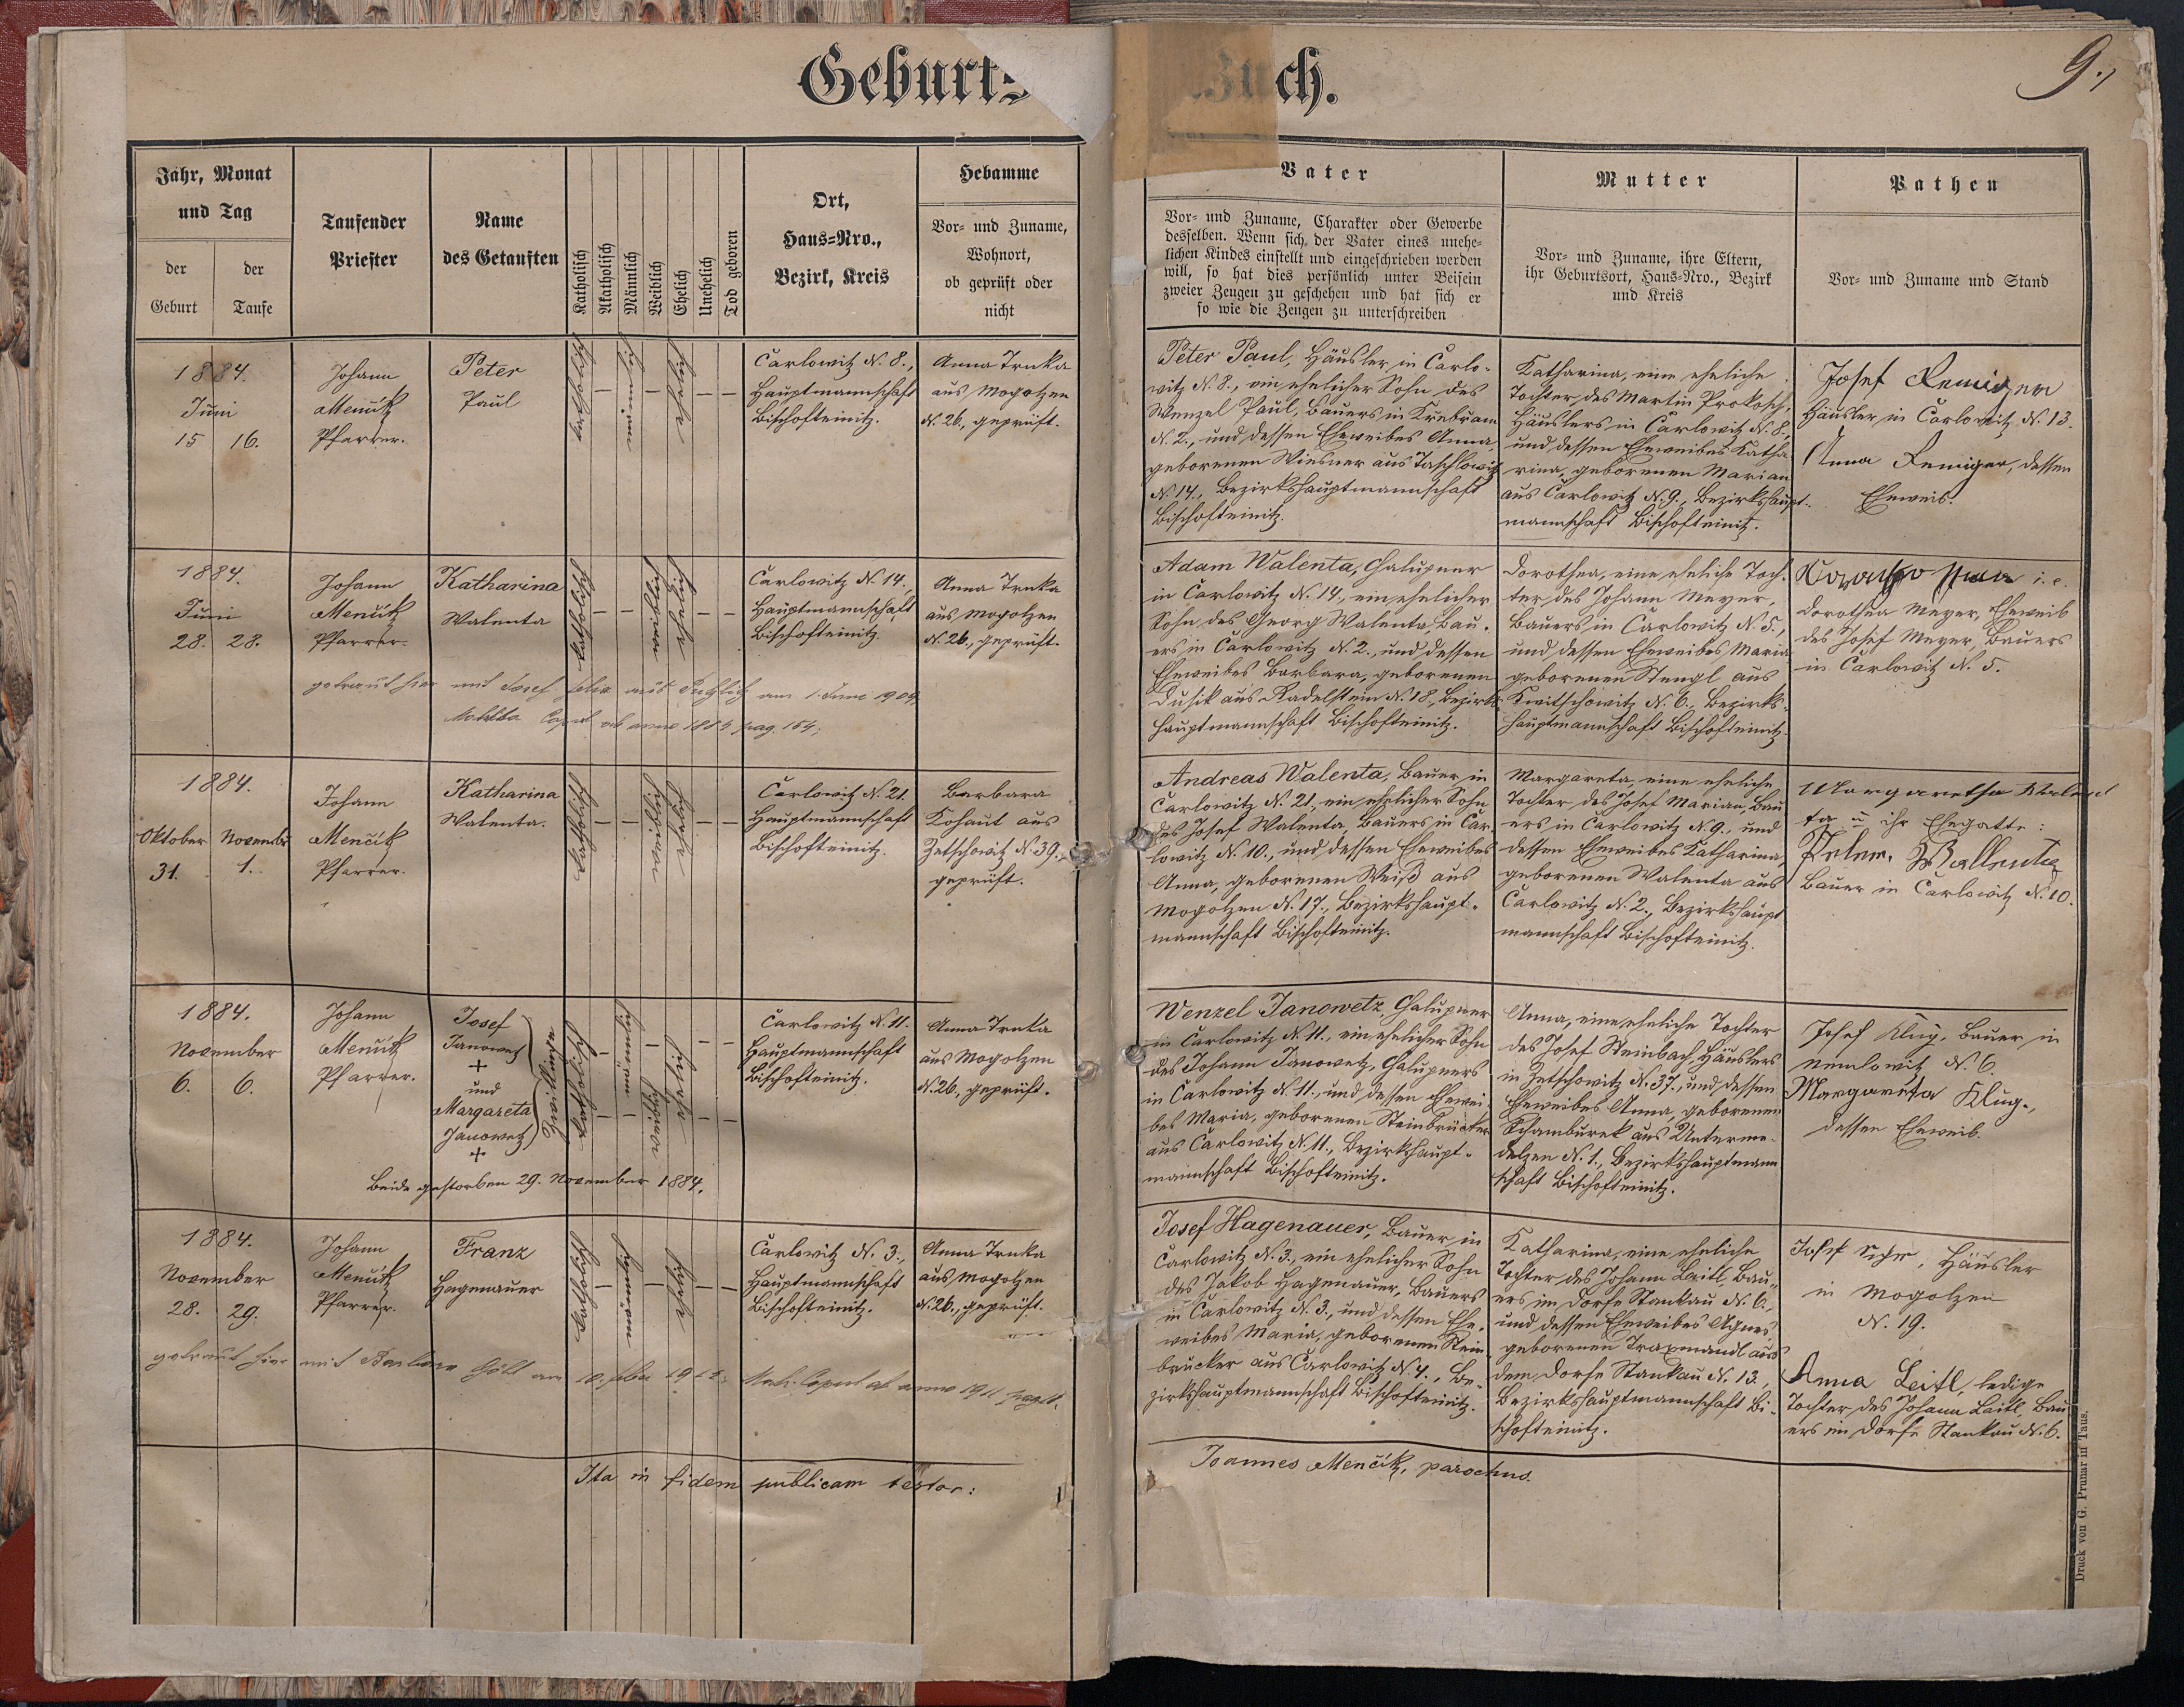 Geburts
Buch.
9.,
Jahr, Monat
und Tag
der
Geburt
der
Taufe
Taufender
Priester
Name
des Getauften
Katholisch
Akatholisch
Männlich
Weiblich
Ehelich
Unehelich
Tod geboren
Ort,
Haus-Nro.,
Bezirk, Kreis
Hebamme
Vor- und Zuname,
Wohnort,
ob geprüft oder
nicht
Vater
Vor- und Zuname, Charakter oder Gewerbe
desselben. Wenn sich der Vater eines unehe-
lichen Kindes einstellt und eingeschrieben werden
will, so hat dies persönlich unter Beisein
zweier Zeugen zu geschehen und hat sich er
so wie die Zeugen zu unterschreiben
Mutter
Vor- und Zuname, ihre Eltern,
ihr Geburtsort, Haus-Nro., Bezirk
und Kreis
Pathen
Vor- und Zuname und Stand
1884.
Juni
15 16.
Johann
Menčik
Pfarrer.
Peter
Paul
katholisch
männlich
ehelich
Carlowitz N. 8.,
Hauptmannschaft
Bischofteinitz.
Anna Trnka
aus Mogolzen
N. 26., geprüft.
Peter Paul, Häusler in Carlo-
witz N. 8., ein ehelicher Sohn des
Wenzel Paul, Bauers in
N. 2., und dessen Eheweibes Anna,
geborenen Wiesner aus Taschlowitz
N. 14., Bezirkshauptmannschaft
Bischofteinitz.
Katharina, eine eheliche
Tochter des Martin Prokosch,
Häuslers in Carlowitz N. 8.,
und dessen Eheweibes Katha
rina, geborenen Marian
aus Carlowitz N. 9., Bezirkshaupt-
mannschaft Bischofteinitz.
Josef Remiger
Häusler in Carlowitz N. 13.
Anna Remiger, dessen
Eheweib.
1884.
Juni
28. 28.
Johann
Menčik
Pfarrer.
Katharina
Walenta
katholisch
weiblich
ehelich
Carlowitz N. 14.,
Hauptmannschaft
Bischofteinitz.
Anna Trnka
aus Mogolzen
N. 26., geprüft.
getraut hier mit Josef Felix aus am 1. Juni 1909,
Copul. ab anno 1884 pag. 164,
Adam Walenta, Chalupner
in Carlowitz N. 14., ein ehelicher
Sohn des Georg Walenta, Bau-
ers in Carlowitz N. 2., und dessen
Eheweibes Barbara, geborenen
Dusik aus Radelstein N. 18., Bezirks-
hauptmannschaft Bischofteinitz.
Dorothea, eine eheliche Toch-
ter des Johann Meyer,
Bauers in Carlowitz N. 5.,
und dessen Eheweibes Maria
geborenen Stengl aus
Kwitschowitz N. 6., Bezirks-
hauptmannschaft Bischofteinitz.
i. e.
Dorothea Meyer, Eheweib
des Josef Meyer, Bauers
in Carlowitz N. 5.
1884.
Oktober November
31. 1.
Johann
Menčik
Pfarrer.
Katharina
Walenta.
katholisch
weiblich
ehelich
Carlowitz N. 21.
Hauptmannschaft
Bischofteinitz.
Barbara
Kohaut aus
Zetschowitz N. 39.,
geprüft.
Andreas Walenta, Bauer in
Carlowitz N. 21., ein ehelicher Sohn
des Josef Walenta, Bauers in Car-
lowitz N. 10., und dessen Eheweibes
Anna, geborenen Weiß aus
Mogolzen N. 17., Bezirkshaupt-
mannschaft Bischofteinitz.
Margareta, eine eheliche
Tochter des Josef Marian, Bau
ers in Carlowitz N. 9., und
dessen Eheweibes Katharina,
geborenen Walenta aus
Carlowitz N. 2., Bezirkshaupt
mannschaft Bischofteinitz.
Margaretha Walen
ta u. ihr Ehegatte:
Peter Wallenta
Bauer in Carlowitz N. 10.
1884.
November
6. 6.
Johann
Menčik
Pfarrer.
Josef
Janowetz
+
und
Margareta
Janowetz
+
Zwillinge
katholisch
männlich
weiblich
ehelich
Carlowitz N. 11.
Hauptmannschaft
Bischofteinitz.
Anna Trnka
aus Mogolzen
N. 26., geprüft.
Beide gestorben 29. November 1884.
Wenzel Janowetz, Chalupner
in Carlowitz N. 11., ein ehelicher Sohn
des Johann Janowetz, Chalupners
in Carlowitz N. 11., und dessen Ehewei-
bes Maria, geborenen Steinbrücker
aus Carlowitz N. 11., Bezirkshaupt-
mannschaft Bischofteinitz.
Anna, eine eheliche Tochter
des Josef Steinbach, Häuslers
in Zetschowitz N. 37., und dessen
Eheweibes Anna, geborenen
Schamburek aus Unterme-
delzen N. 1., Bezirkshauptmann
schaft Bischofteinitz.
Josef Klug, Bauer in
Nemlowitz N. 6.
Margareta Klug.,
dessen Eheweib.
1884.
November
28. 29.
Johann
Menčik
Pfarrer.
Franz
Hagenauer
katholisch
männlich
ehelich
Carlowitz N. 3.,
Hauptmannschaft
Bischofteinitz.
Anna Trnka
aus Mogolzen
N. 26., geprüft.
getraut hier mit Barbara am 10. 1912; Copul ab anno 1911
Josef Hagenauer, Bauer in
Carlowitz N. 3., ein ehelicher Sohn
des Jakob Hagenauer, Bauers
in Carlowitz N. 3., und dessen Ehe-
weibes Maria, geborenen Stein-
brücker aus Carlowitz N. 4., Be-
zirkshauptmannschaft Bischofteinitz.
Katharina, eine eheliche
Tochter des Johann Leitl, Bau-
ers im Dorfe Stankau N. 6.,
und dessen Eheweibes Agnes,
geborenen Traxmandl aus
dem Dorfe Stankau N. 13.,
Bezirkshauptmannschaft Bi-
schofteinitz.
Josef, Häusler
in Mogolzen
N. 19.
Anna Leitl, ledige
Tochter des Johann Leitl, Bau
ers im Dorfe Stankau N. 6.
Ita in fidem publicam testor:
Joannes Menčik, parochus.
Druck von G. Prunar in Taus.